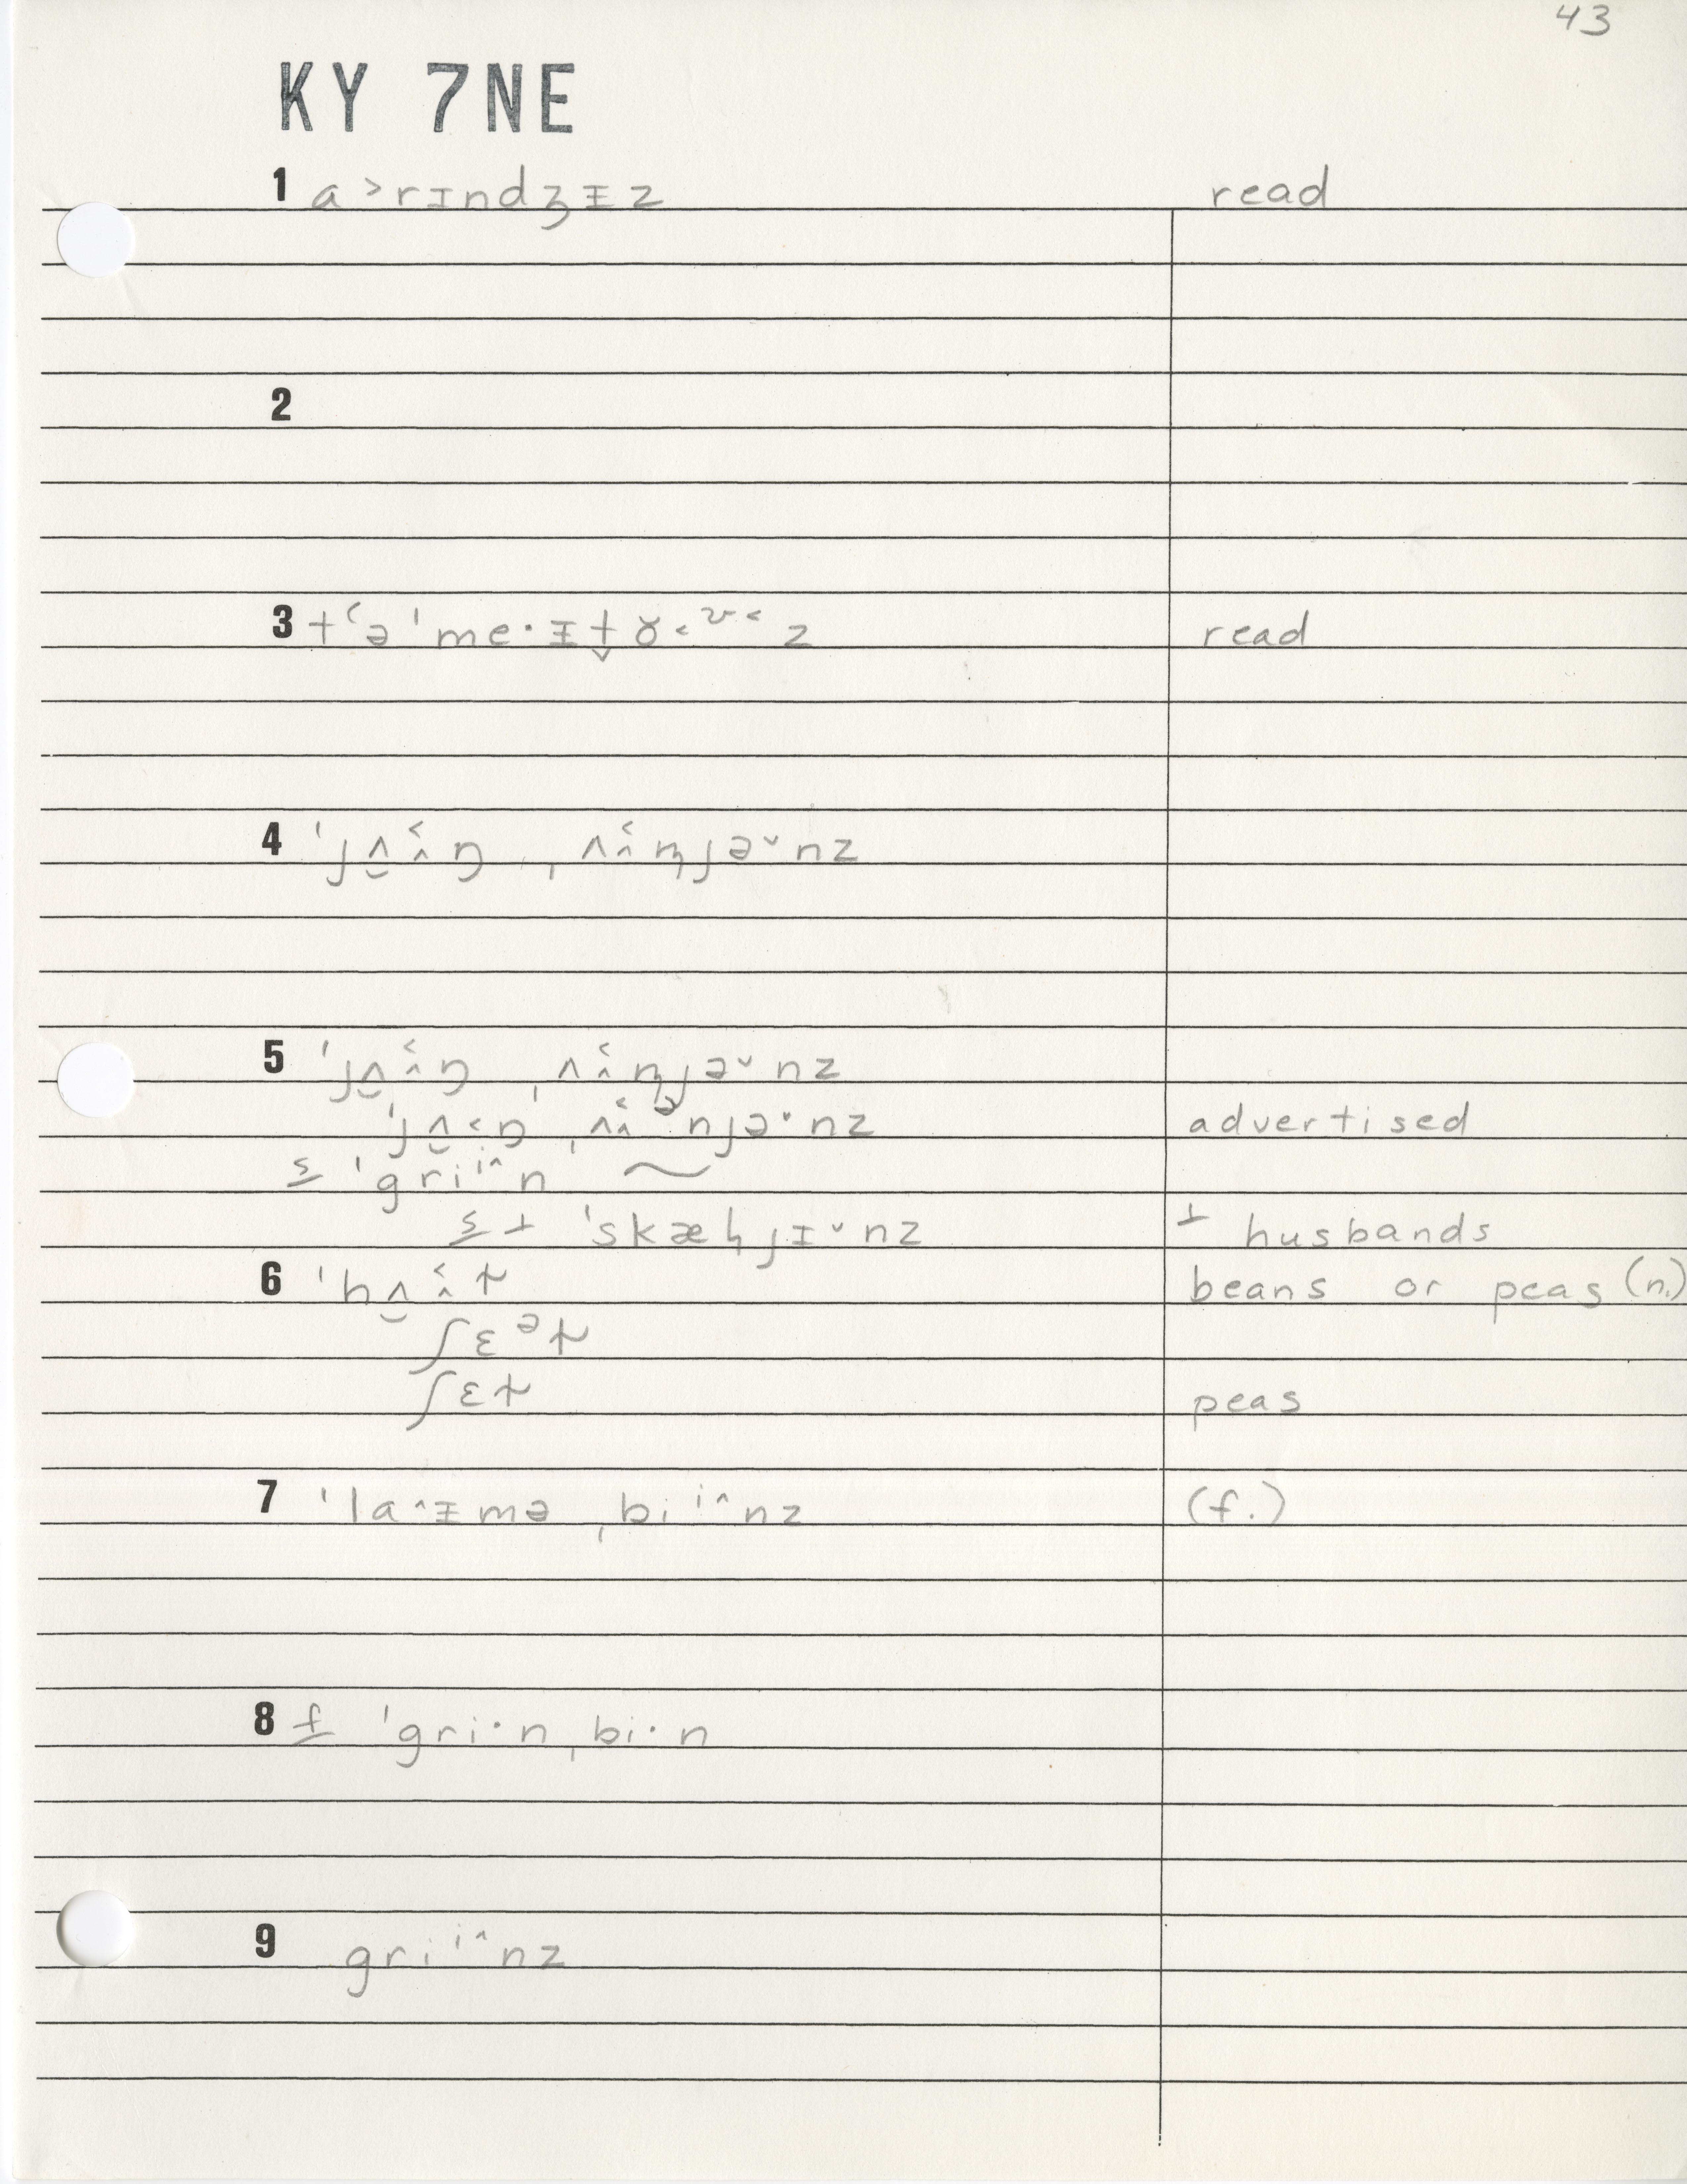 43
KY 7NE
1 a˃rɪndʒɪ̵z read
2
3 tʻəˈme·ɪ̵t̬ɤ˂ʊ˂z read
4 ˈjʌ̮ʌ̂˂ŋ ˌʌʌ̂˂n̩jəˇnz
5 ˈjʌ̮ʌ̂˂ŋ ˌʌʌ̂˂n̩jəˇnz
ˈjʌ̮˂ŋ ˌʌʌ̂˂ᵊnjə·nz advertised
s ˈgriiˆn ~
s + ˈskæl̩jɪˇnz + husbands
6 ˈhʌ̮ʌ̂˂ɫ beans or peas (n.)
ʃɛᵊɫ
ʃɛɫ peas
7 ˈlaˆɪ̵mə ˌbiiˆnz (f.)
8 f ˈgri·nˌbi·n
9 griiˆnz